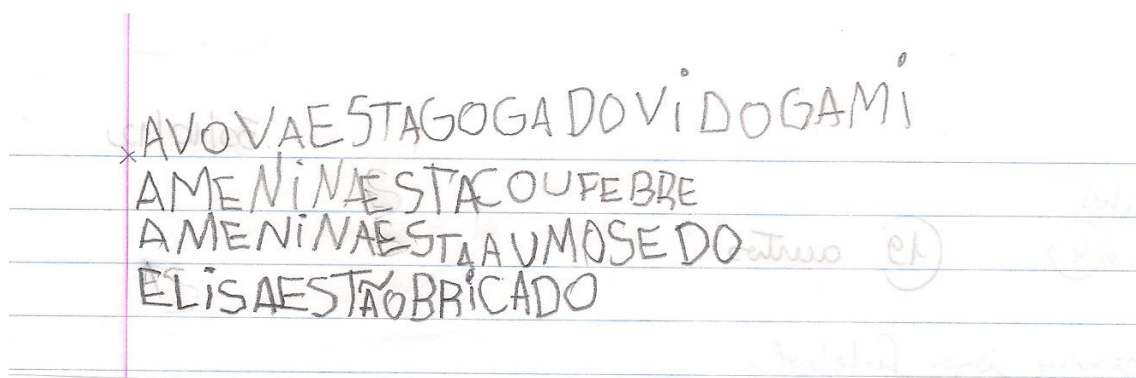 AVOVAESTAGOGADOVIDOGAMI
AMENINAESTACOUFEBRE
AMENINAESTAAUMOSEDO
ELISAESTÃOBRICADO